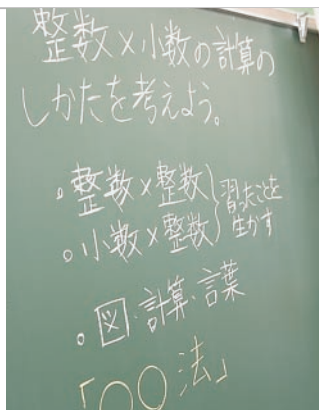 整数×小数の計算の
しかたを考えよう。
。整数×整数
。小数×整数
習ったことを
生かす
。図・計算・言葉
「○○法」